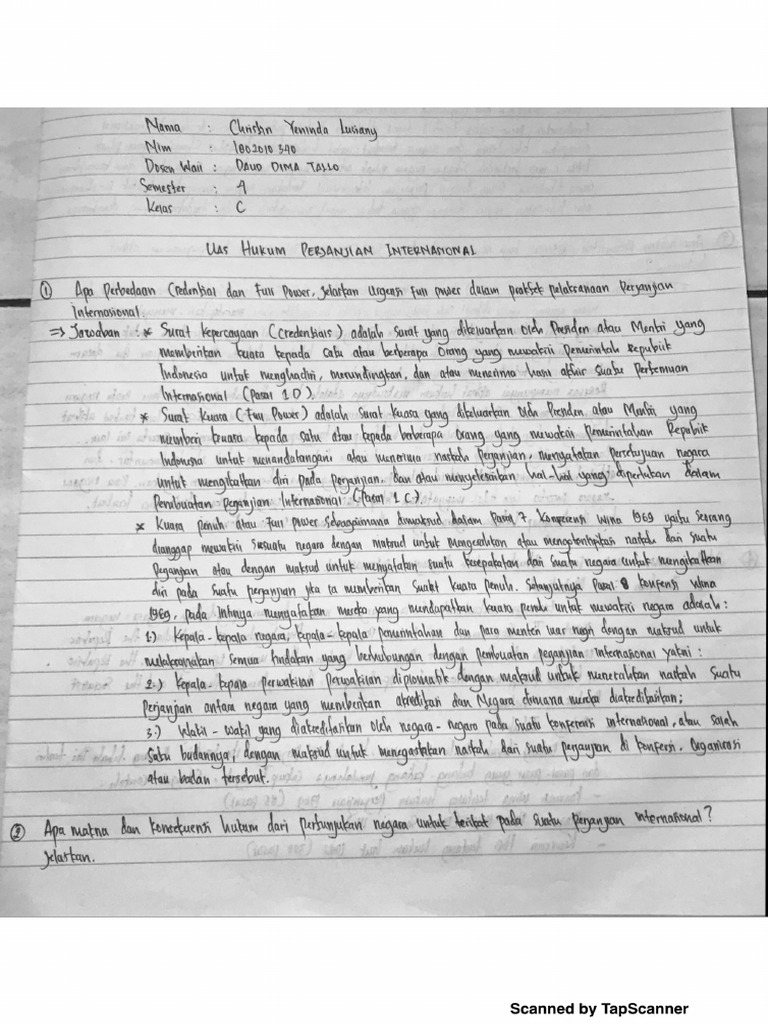 Nama : Christin Yeninda Lusiany
Nim : 1802010340
Dosen Wali : DAUD DIMA TALLO
Semester : 4
Kelas : C
UAS HUKUM PERJANJIAN INTERNASIONAL
① Apa Perbedaan Credential dan Full Power, Jelaskan Urgensi Full power dalam praktek pelaksanaan Perjanjian
Internasional.
⇒ Jawaban : * Surat Kepercayaan (Credentials) adalah Surat yang dikeluarkan oleh Presiden atau Mentri yang
memberikan kuasa kepada satu atau beberapa Orang yang mewakili pemerintah Republik
Indonesia untuk menghadiri, merundingkan, dan atau menerima hasil akhir suatu Pertemuan
Internasional (Pasal 1 D).
* Surat Kuasa (Full Power) adalah surat kuasa yang dikeluarkan oleh Presiden atau Mentri yang
memberi kuasa kepada satu atau kepada beberapa orang yang mewakili pemerintahan Republik
Indonesia untuk menandatangani atau menerima naskah perjanjian, menyatakan persetujuan negara
untuk mengikatkan diri pada perjanjian. Dan atau menyelesaikan hal-hal yang diperlukan dalam
Pembuatan perjanjian Internasional (Pasal 1 C).
* Kuasa penuh atau Full power sebagaimana dimaksud dalam Pasal 7 Konperensi Wina 1969 yaitu Seorang
dianggap mewakili sesuatu negara dengan maksud untuk mengesahkan atau mengotentipkasi naskah dari suatu
perjanjian atau dengan maksud untuk menyatakan suatu kesepakatan dari suatu negara untuk mengikatkan
diri pada suatu perjanjian jika ia memberikan Suatu kuasa penuh. Selanjutnya Pasal 8 konfensi wina
1969, pada Intinya menyatakan mereka yang mendapatkan kuasa penuh untuk mewakili negara adalah:
1.) Kepala-kepala negara, kepala-kepala pemerintahan dan para menteri luar negri dengan maksud untuk
melaksanakan semua tindakan yang berhubungan dengan pembuatan perjanjian internasional yakni:
2.) Kepala-kepala perwakilan perwakilan diplomatik dengan maksud untuk menetahkan naskah Suatu
Perjanjian antara negara yang memberikan akreditasi dan Negara dimana mereka diakreditasikan;
3.) Wakil-wakil yang diakreditasikan oleh negara-negara pada suatu konferensi internasional, atau Salah
Satu badannya, dengan maksud untuk menegaskan naskah dari suatu perjanjian di konfensi. Organisasi
atau badan tersebut.
② Apa makna dan konsekuensi hukum dari pertunjukan negara untuk terikat pada suatu perjanjian internasional?
Jelaskan.
Scanned by TapScanner